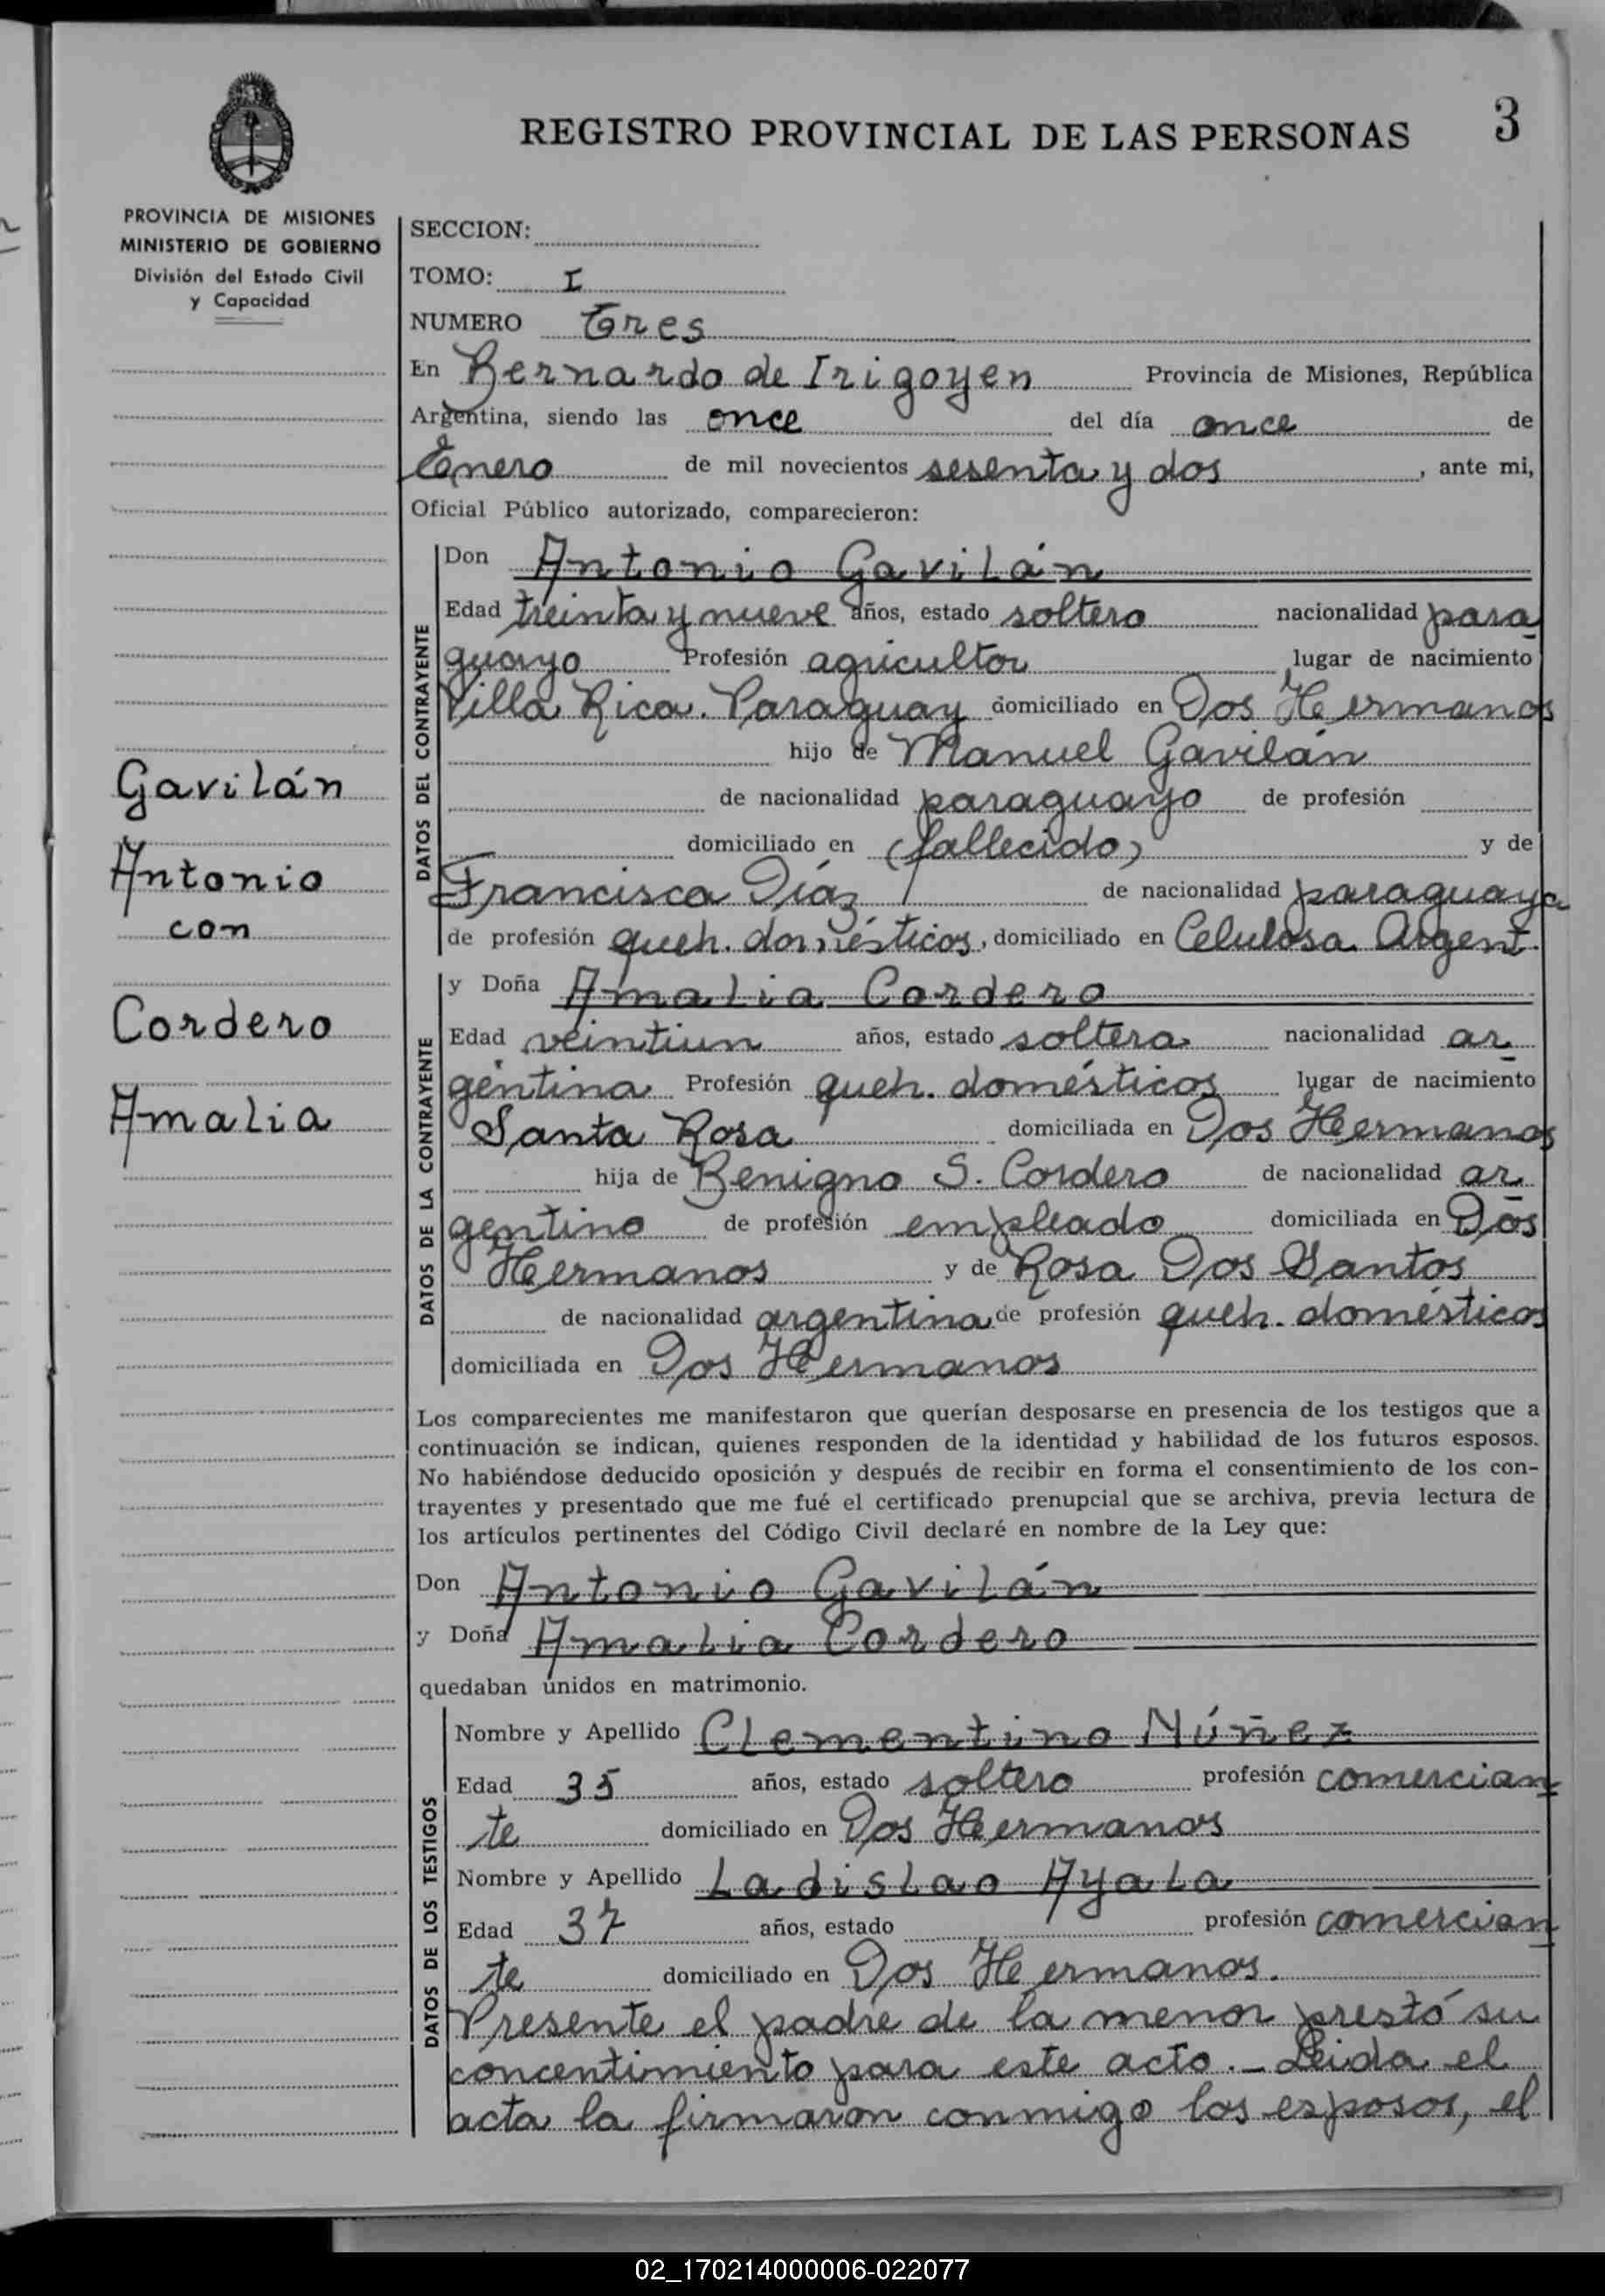 REGISTRO PROVINCIAL DE LAS PERSONAS
3
PROVINCIA DE MISIONES
MINISTERIO DE GOBIERNO
División del Estado Civil
y Capacidad
SECCION:
TOMO: I
NUMERO Tres
En Bernardo de Irigoyen Provincia de Misiones, República
Argentina, siendo las once del día once de
Enero de mil novecientos sesenta y dos, ante mi,
Oficial Público autorizado, comparecieron:
Gavilán
Antonio
con
Cordero
Amalia
DATOS DEL CONTRAYENTE
Don Antonio Gavilán
Edad treinta y nueve años, estado soltero nacionalidad para
guayo Profesión agricultor lugar de nacimiento
Villa Rica. Paraguay domiciliado en Dos Hermanos
hijo de Manuel Gavilán
de nacionalidad paraguayo de profesión
domiciliado en (fallecido) y de
Francisca Díaz de nacionalidad paraguaya
de profesión queh. domésticos, domiciliado en Celulosa Argent.
DATOS DE LA CONTRAYENTE
y Doña Amalia Cordero
Edad veintiun años, estado soltera nacionalidad ar
gentina Profesión queh. domésticos lugar de nacimiento
Santa Rosa domiciliada en Dos Hermanos
hija de Benigno S. Cordero de nacionalidad ar
gentino de profesión empleado domiciliada en Dos
Hermanos y de Rosa Dos Santos
de nacionalidad argentina de profesión queh. domésticos
domiciliada en Dos Hermanos
Los comparecientes me manifestaron que querían desposarse en presencia de los testigos que a
continuación se indican, quienes responden de la identidad y habilidad de los futuros esposos.
No habiéndose deducido oposición y después de recibir en forma el consentimiento de los con-
trayentes y presentado que me fué el certificado prenupcial que se archiva, previa lectura de
los artículos pertinentes del Código Civil declaré en nombre de la Ley que:
Don Antonio Gavilán
y Doña Amalia Cordero
quedaban unidos en matrimonio.
DATOS DE LOS TESTIGOS
Nombre y Apellido Clementino Núñez
Edad 35 años, estado soltero profesión comercian
te domiciliado en Dos Hermanos
Nombre y Apellido Ladislao Ayala
Edad 37 años, estado profesión comercian
te domiciliado en Dos Hermanos.
Presente el padre de la menor prestó su
concentimiento para este acto. - Leida el
acta la firmaron conmigo los esposos, el
02_170214000006-022077